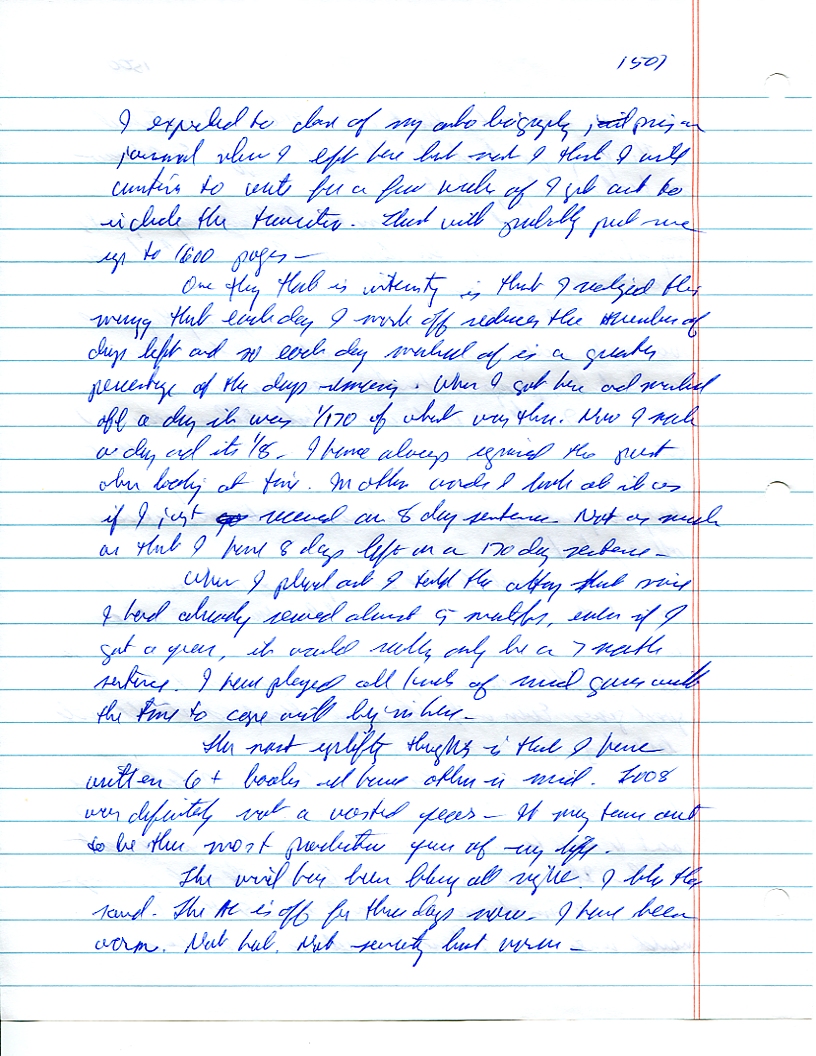 1507
I expected to close of my autobiography prison
journal when I left here but now I think I will
continue to write for a few weeks after I get out to
include the transition. That will probably put me
up to 1600 pages -
One thing that is interesting is that I realized this
morning that each day I mark off reduces the number of
days left and so each day marked of is a greater
percentage of the days remaining. When I got here and marked
off a day it was 1/170 of what was there. Now I mark
a day and its 1/8 - I have always ignored the past
when looking at time. In other words I look at it as
if I just received an 8 day sentence. Not as much
as that I have 8 days left on a 170 day sentence -
When I plead out I told the attorney that since
I had already served almost 5 months, even if I
got a year, it would really only be a 7 month
sentence. I have played all kinds of mind games with
the time to cope with being in here -
The most uplifting thoughts is that I have
written 6+ books and have others in mind. 2008
was definitely not a wasted year - It may turn out
to be the most productive year of my life.
The wind has been blowing all night. I like the
sound. The AC is off for three days now - I have been
warm. Not hot. Not sweaty but warm -